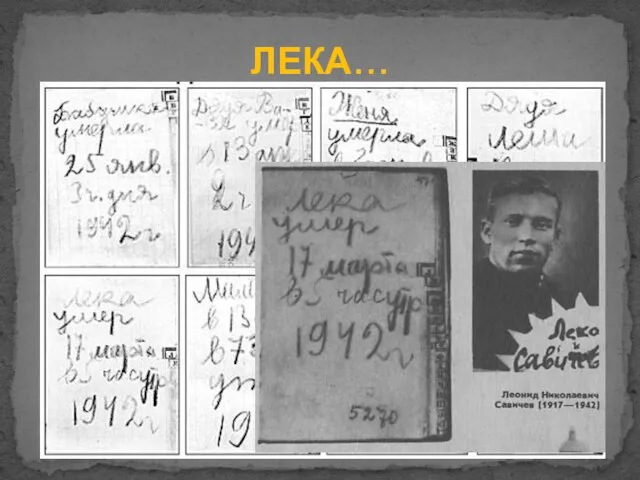 ЛЕКА...
Бабушка
умерла
25 янв.
3 ч. дня
1942 г
Дядя Ва-
-ся умер
в 13 апр
2 ч
194
Женя
умерла
Дядя
Леша
Лека
умер
17 марта
в 5 часутр
1942 г
в 13
в 73
19
Лека
умер
17 марта
в 5 часутр
1942 г
5270
Лека
Савичев
Леонид Николаевич
Савичев (1917—1942)